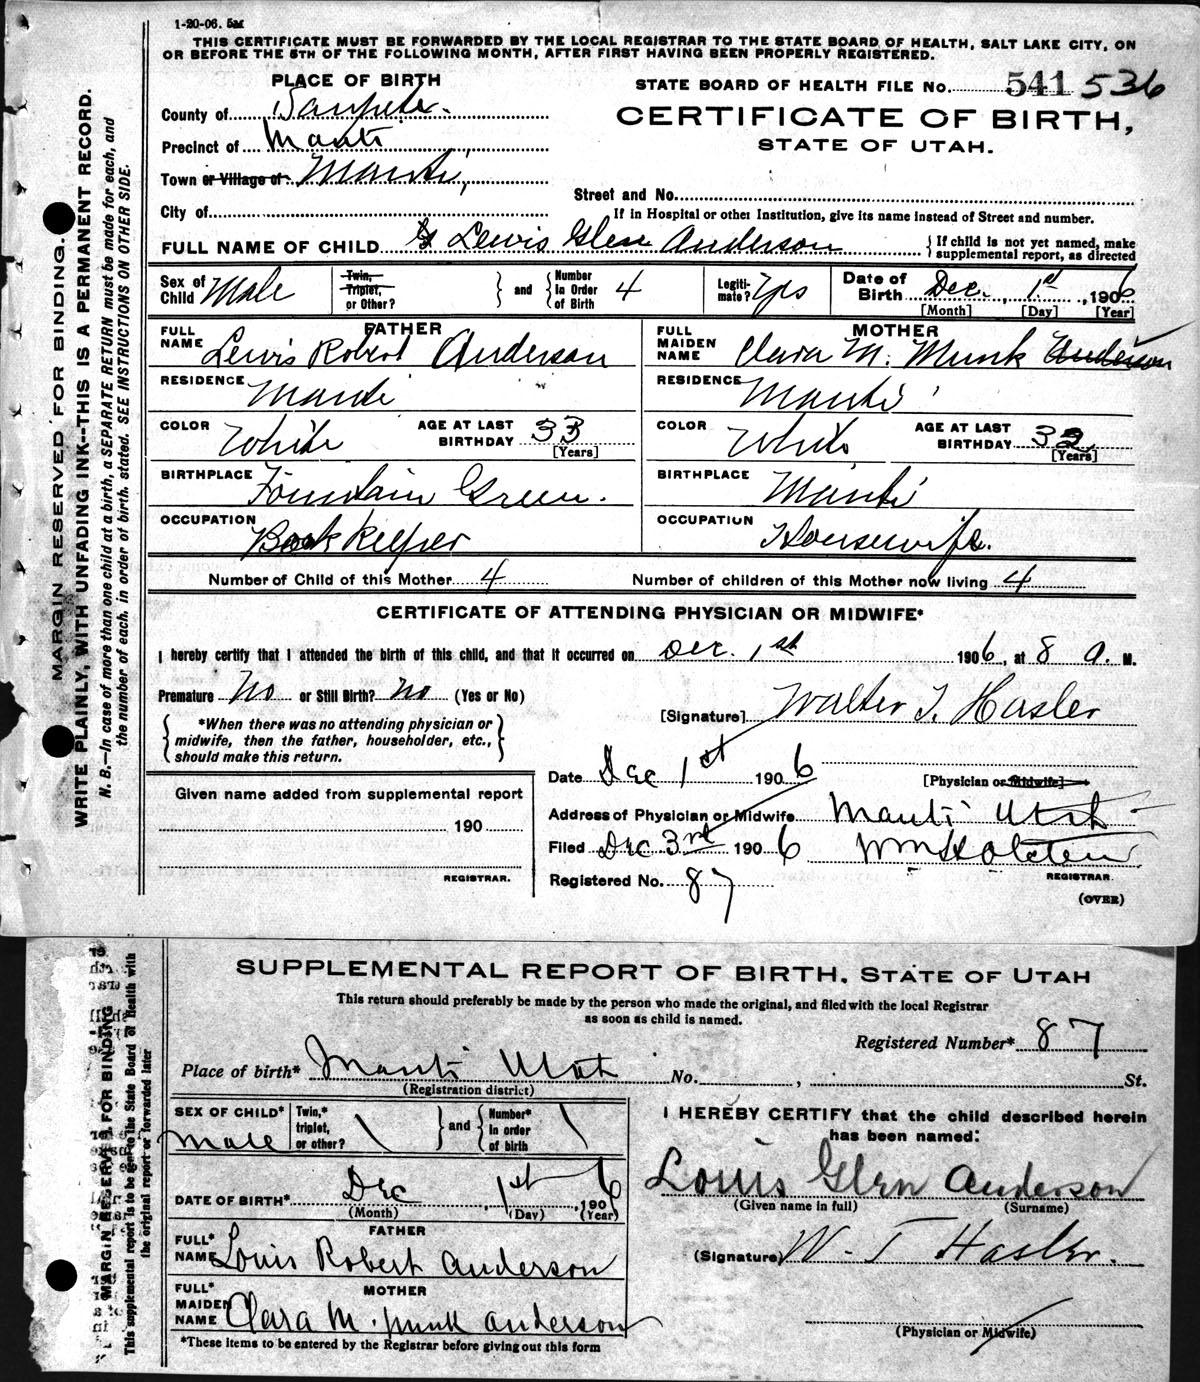 1-20-06. 5M
THIS CERTIFICATE MUST BE FORWARDED BY THE LOCAL REGISTRAR TO THE STATE BOARD OF HEALTH, SALT LAKE CITY, ON
OR BEFORE THE 5TH OF THE FOLLOWING MONTH, AFTER FIRST HAVING BEEN PROPERLY REGISTERED.
MARGIN RESERVED FOR BINDING.
WRITE PLAINLY, WITH UNFADING INK--THIS IS A PERMANENT RECORD.
N. B.—In case of more than one child at a birth, a SEPARATE RETURN must be made for each, and
the number of each, in order of birth, stated. SEE INSTRUCTIONS ON OTHER SIDE.
PLACE OF BIRTH
County of Sanpete.
Precinct of Manti
Town or Village of Manti,
City of
STATE BOARD OF HEALTH FILE No. 541 536
CERTIFICATE OF BIRTH,
STATE OF UTAH.
Street and No.
If in Hospital or other Institution, give its name instead of Street and number.
FULL NAME OF CHILD Lewis Glen Anderson
If child is not yet named, make
supplemental report, as directed
Sex of Child Male
Twin, Triplet, or Other?
and Number In Order of Birth 4
Legitimate? Yes
Date of Birth Dec. 1st, 1906
[Month] [Day] [Year]
FATHER
FULL NAME Lewis Robert Anderson
RESIDENCE Manti
COLOR White AGE AT LAST BIRTHDAY 33
[Years]
BIRTHPLACE Fountain Green.
OCCUPATION Bookkeeper
MOTHER
FULL MAIDEN NAME Clara M. Munk Anderson
RESIDENCE Manti
COLOR White AGE AT LAST BIRTHDAY 32
[Years]
BIRTHPLACE Manti
OCCUPATION Housewife.
Number of Child of this Mother 4 Number of children of this Mother now living 4
CERTIFICATE OF ATTENDING PHYSICIAN OR MIDWIFE*
I hereby certify that I attended the birth of this child, and that it occurred on Dec. 1st 1906, at 8 a. M.
Premature No or Still Birth? No (Yes or No)
*When there was no attending physician or
midwife, then the father, householder, etc.,
should make this return.
[Signature] Walter T. Hasler
Date Dec 1st 1906 [Physician or Midwife]
Address of Physician or Midwife Manti Utah
Filed Dec 3rd 1906 Wm Holsten
REGISTRAR.
Registered No. 87
(OVER)
Given name added from supplemental report
190
REGISTRAR.
SUPPLEMENTAL REPORT OF BIRTH, STATE OF UTAH
This return should preferably be made by the person who made the original, and filed with the local Registrar
as soon as child is named.
MARGIN RESERVED FOR BINDING
This supplemental report is to be sent to the State Board of Health with
the original report or forwarded later
Registered Number* 87
Place of birth* Manti Utah No. , St.
(Registration district)
SEX OF CHILD* Male
Twin,* triplet, or other? \
and Number* In order of birth \
DATE OF BIRTH* Dec 1st, 1906
(Month) (Day) (Year)
FATHER
FULL* NAME Louis Robert Anderson
MOTHER
FULL* MAIDEN NAME Clara M. Munk Anderson
*These items to be entered by the Registrar before giving out this form
I HEREBY CERTIFY that the child described herein
has been named:
Louis Glen Anderson
(Given name in full) (Surname)
(Signature) W. T. Hasler.
(Physician or Midwife)